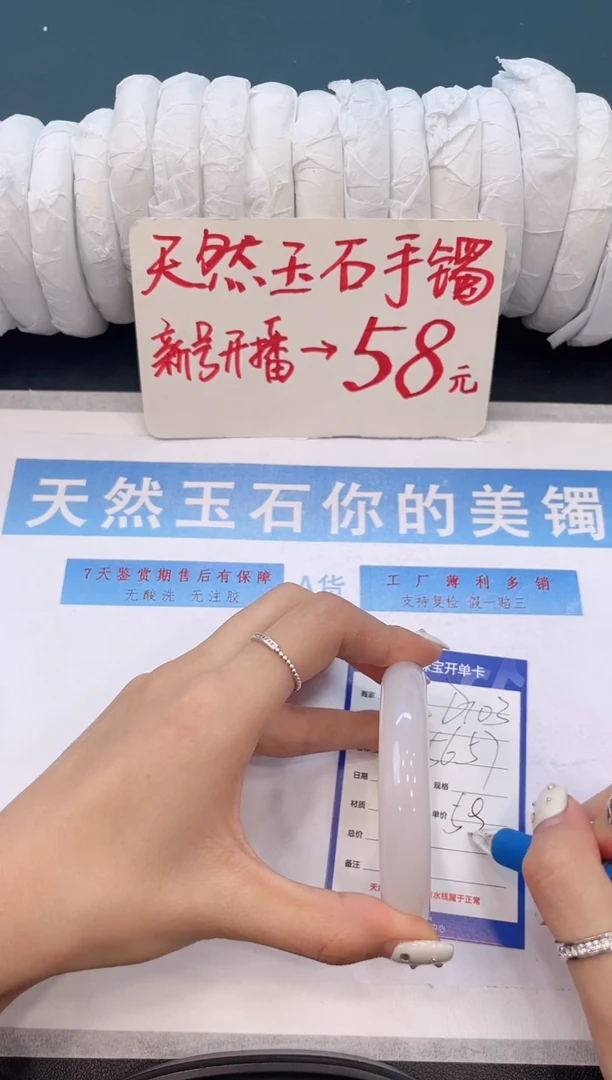 天然玉石手镯
新号开播→58元
天然玉石你的美镯
7天鉴赏期售后有保障
无酸洗 无注胶
A货
工厂薄利多销
支持复检 假一赔三
宝开单卡
商家
日期
规格
材质
单价 58
总价
备注
水线属于正常